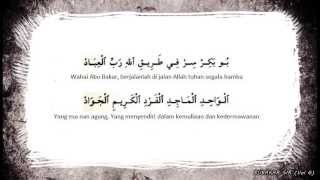 بُو بَكِرْ سِرْ فِي طَرِيقِ اللهِ رَبُّ الْعِبَادْ
Wahai Abu Bakar, berjalanlah di jalan Allah tuhan segala hamba
الْوَاحِدِ الْمَاجِدِ الْفَرْدِ الْكَرِيمِ الْجَوَادْ
Yang esa nan agung, Yang menyendiri dalam kemuliaan dan kedermawanan